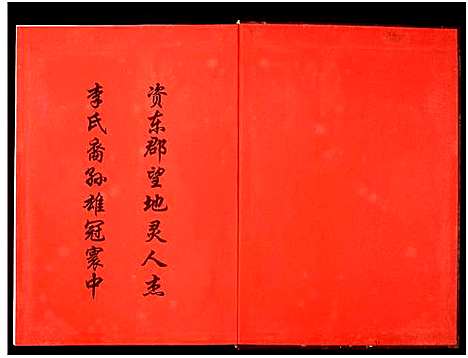 资东郡望地灵人杰
李氏裔孙雄冠寰中